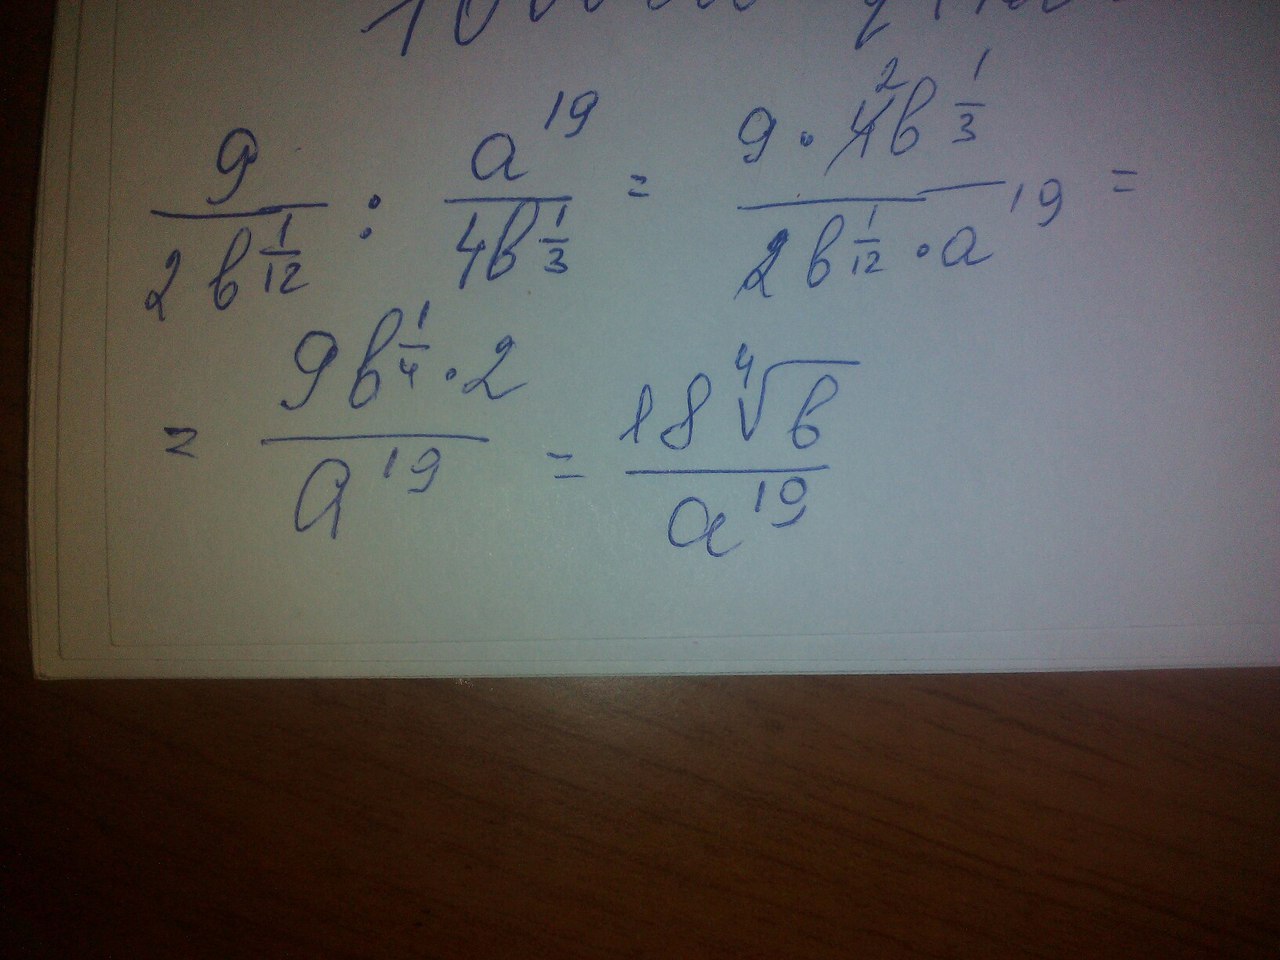 9/(2в^(1/12)) : a^19/(4в^(1/3)) = (9 · 4̸ ²в^(1/3))/(2̸в^(1/12) · a^19) =
= (9в^(1/4) · 2)/a^19 = (18 ⁴√в)/a^19